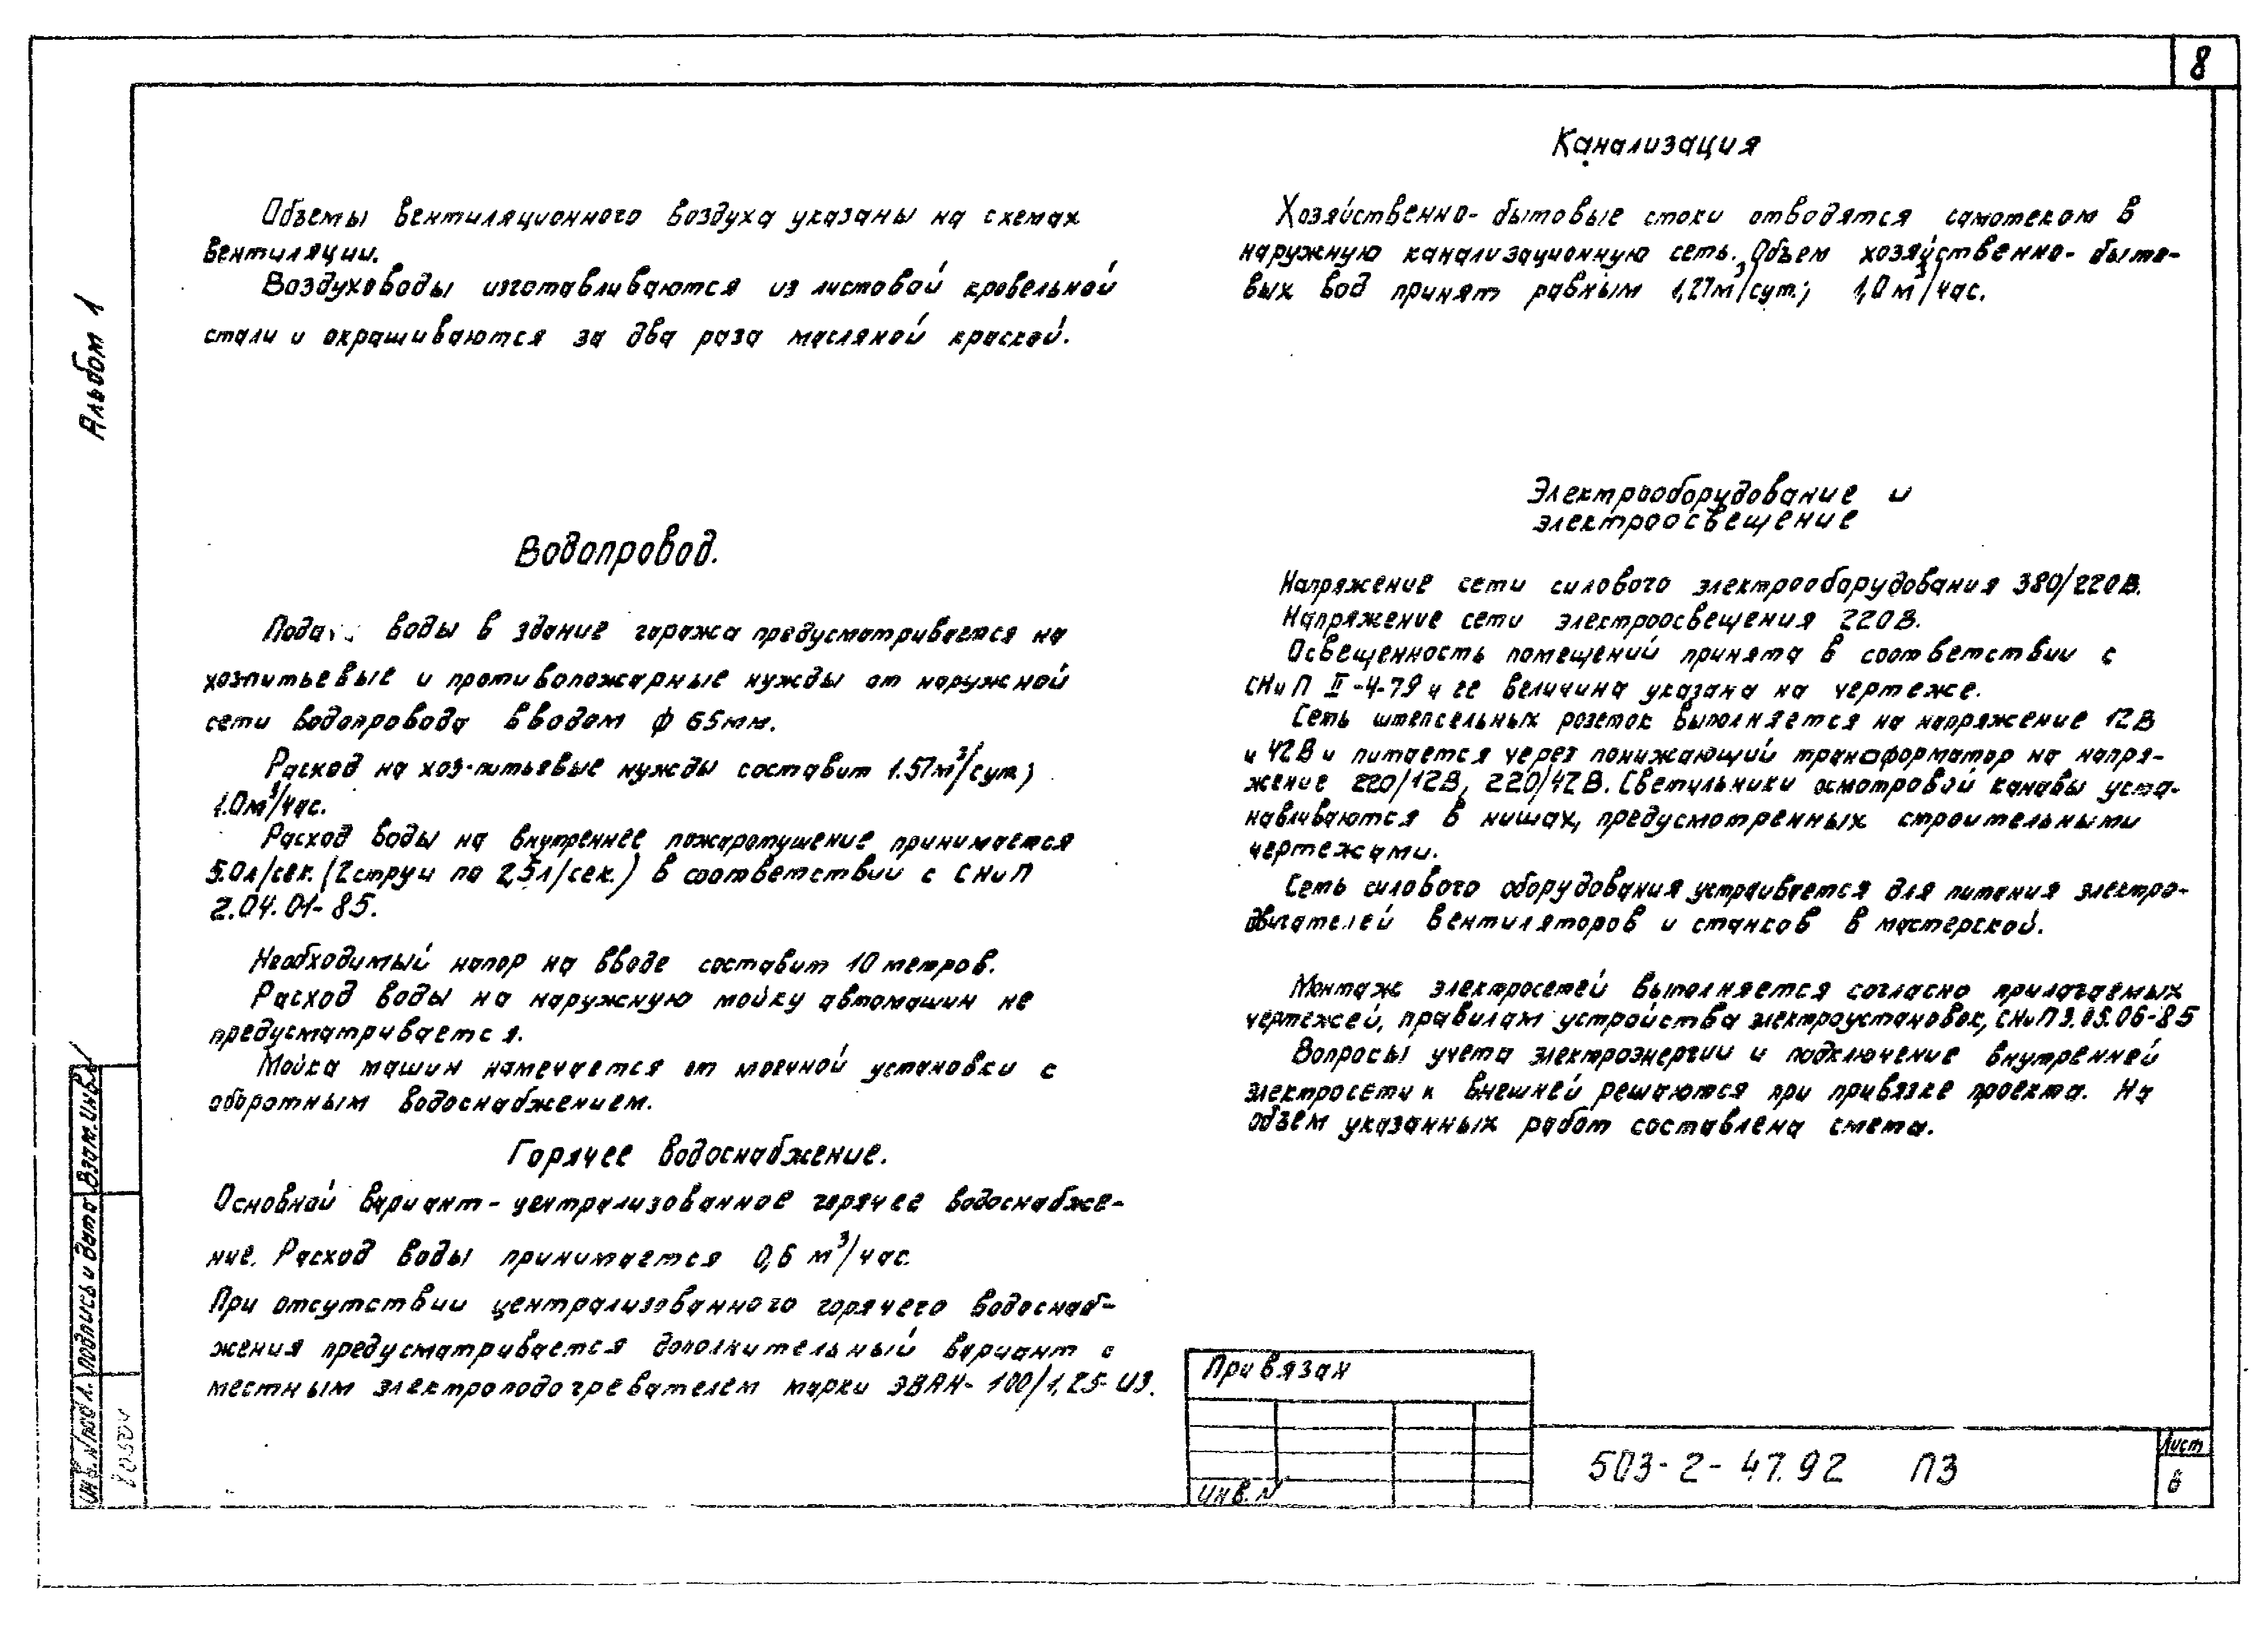 8
Альбом 1
Объемы вентиляционного воздуха указаны на схемах
вентиляции.
Воздуховоды изготавливаются из листовой кровельной
стали и окрашиваются за два раза масляной краской.
Водопровод.
Пода воды в здание гаража предусматривается на
хозпитьевые и противопожарные нужды от наружной
сети водопровода вводом ф 65мм.
Расход на хоз-питьевые нужды составит 1.57м³/сут;
1.0м³/час.
Расход воды на внутреннее пожаротушение принимается
5.0л/сек. (2 струи по 2,5л/сек.) в соответствии с СНиП
2.04.01-85.
Необходимый напор на вводе составит 10 метров.
Расход воды на наружную мойку автомашин не
предусматривается.
Мойка машин намечается от моечной установки с
оборотным водоснабжением.
Горячее водоснабжение.
Основной вариант- централизованное горячее водоснабже-
ние. Расход воды принимается 0,6 м³/час.
При отсутствии централизованного горячего водоснаб-
жения предусматривается дополнительный вариант с
местным электроподогревателем марки ЭВАН- 100/1,25-И3.
Канализация
Хозяйственно- бытовые стоки отводятся самотеком в
наружную канализационную сеть. Объем хозяйственно- быто-
вых вод принят равным 1,27м³/сут; 1,0м³/час.
Электрооборудование и
электроосвещение
Напряжение сети силового электрооборудования 380/220В.
Напряжение сети электроосвещения 220В.
Освещенность помещений принята в соответствии с
СНиП II-4-79 и ее величина указана на чертеже.
Сеть штепсельных розеток выполняется на напряжение 12В
и 42В и питается через понижающий трансформатор на напря-
жение 220/12В, 220/42В. Светильники осмотровой канавы уста-
навливаются в нишах, предусмотренных строительными
чертежами.
Сеть силового оборудования устраивается для питания электро-
двигателей вентиляторов и станков в мастерской.
Монтаж электросетей выполняется согласно прилагаемых
чертежей, правилам устройства электроустановок, СНиП 3.05.06-85
Вопросы учета электроэнергии и подключение внутренней
электросети к внешней решаются при привязке проекта. На
объем указанных работ составлена смета.
Привязан
Инв. N
503-2-47.92 ПЗ
Лист
6
Инв. N подл.
Подпись и дата
Взам. инв.